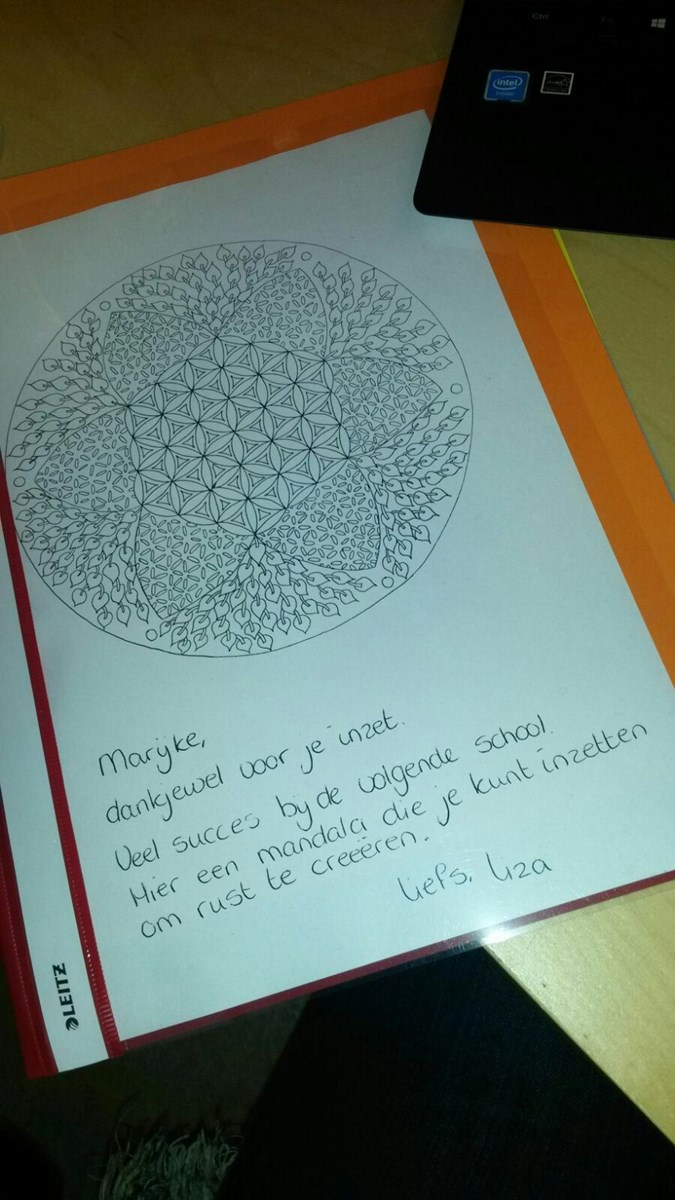 Ctrl
intel
inside
Marijke,
dankjewel voor je inzet.
Veel succes bij de volgende school.
Hier een mandala die je kunt inzetten
om rust te creëeren.
liefs, Liza
LEITZ